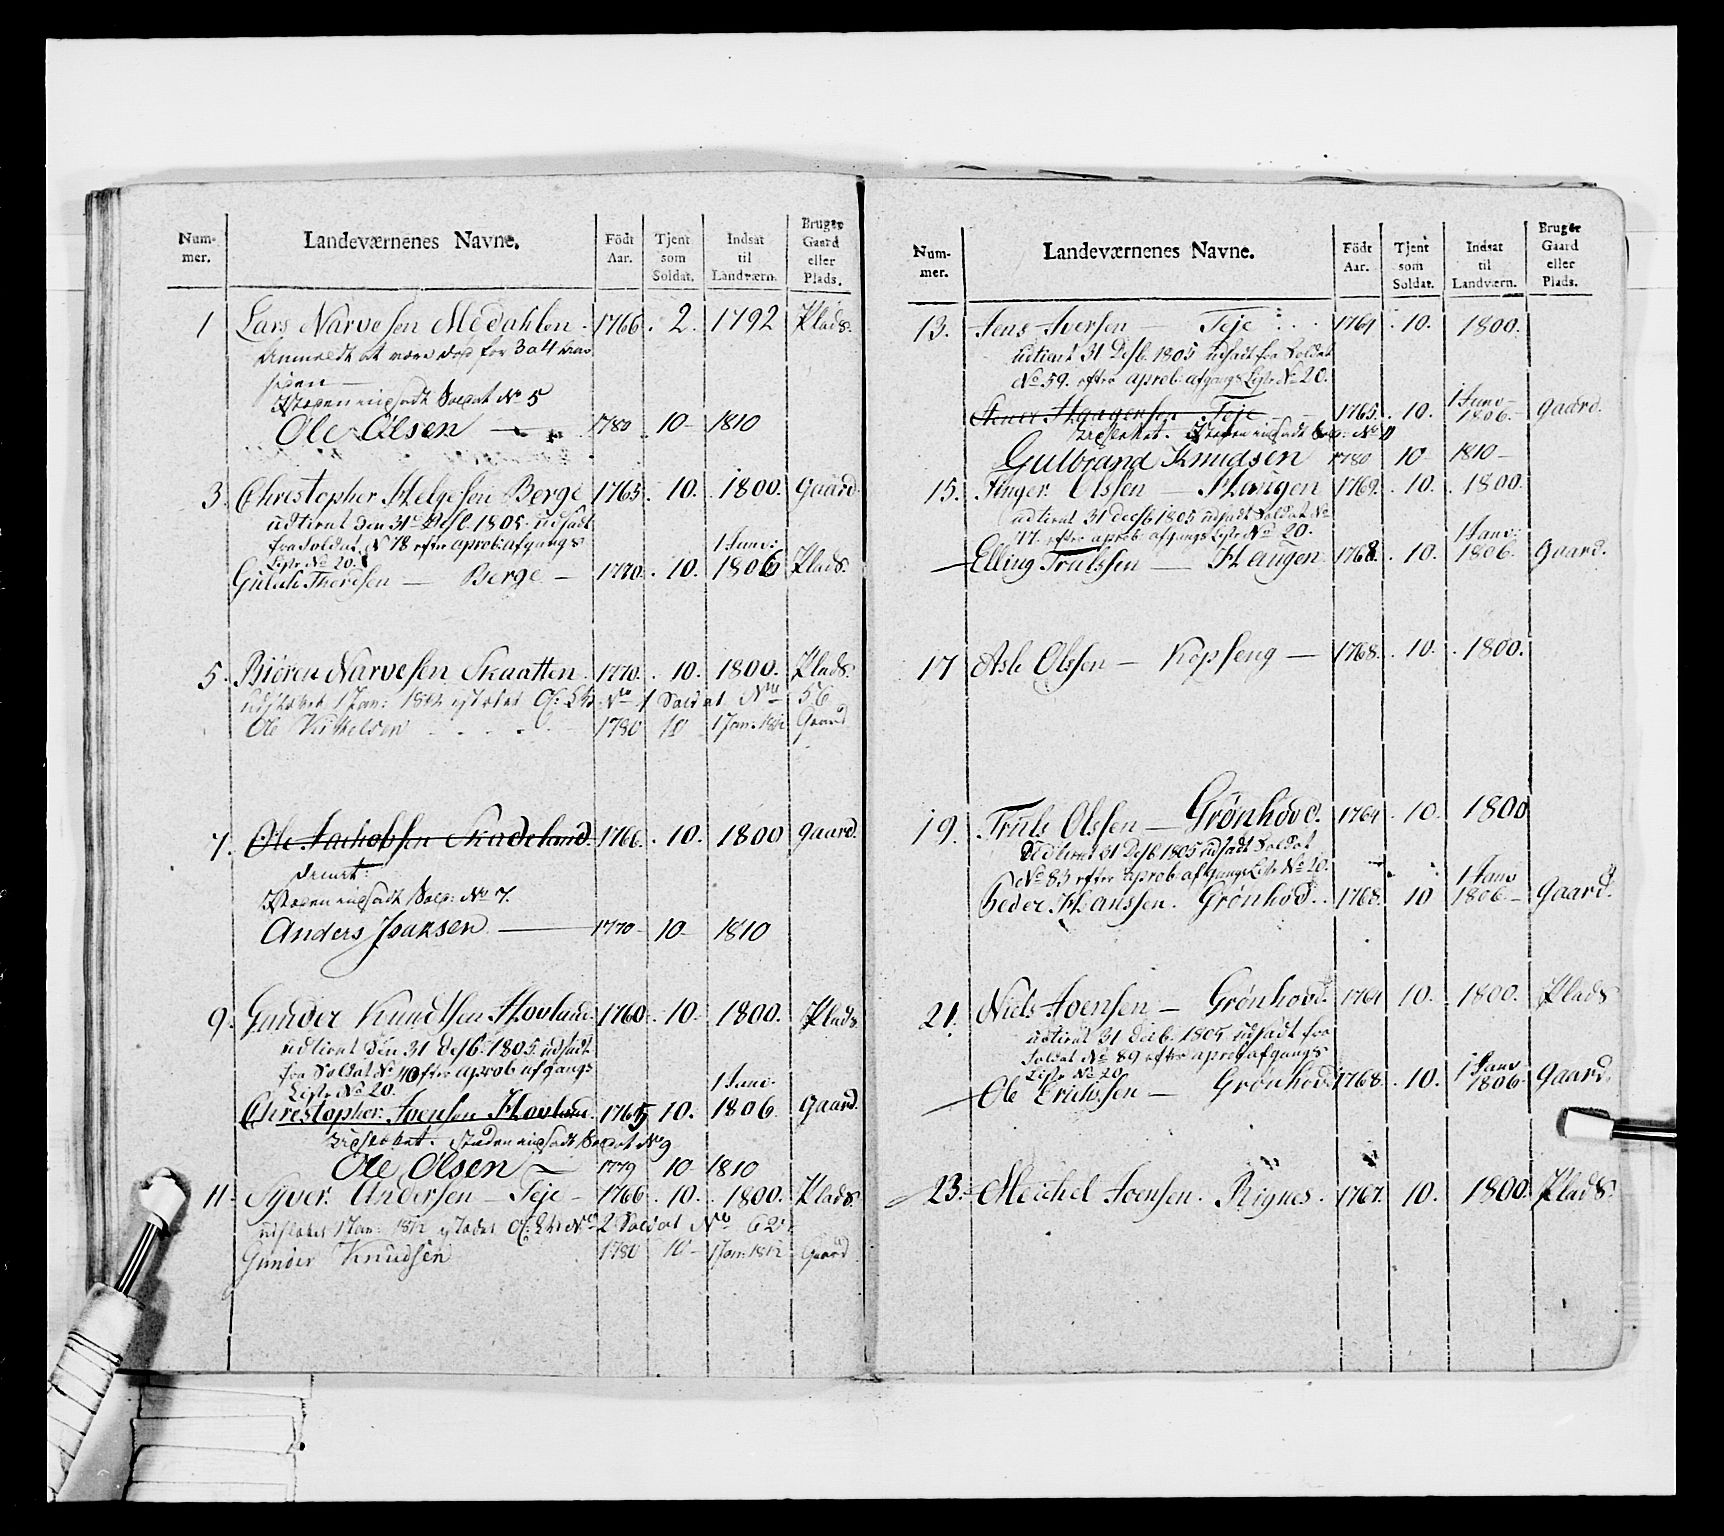 Num- mer. Landeværnenes Navne. Födt Aar. Tjent som Soldat. Indsat til Landværn. Bruger Gaard eller Plads.
1 Lars Narvesen Medahlen 1766. 2. 1792 Plads.
Anmeldt at være død for 3 a 4 Aar
siden
Stæden indsadt Soldat No 5
Ole Olsen 1780 10 1810
3. Christopher Helgesen Berge 1765. 10. 1800. Gaard.
udtient den 31 Desb. 1805. udsadt
fra Soldat No 78 efter aprob: afgangs
Liste No 20.
1 Janv:
Theresen Berge 1770. 10. 1806 Plads.
5. Biören Narvesen Skaatten 1770. 10. 1800. Plads.
1 Jan: 1812 No 1 Soldat No 56
Ole Kittelsen 1780 10 1 Jan: 1812 Gaard
7. Ole Jachobsen Skadeland. 1766. 10. 1800 Gaard.
Stæden indsadt Sold: No 7.
Anders Isaksen 1770 10 1810
9. Gunder Knudtsen Hovland 1760. 10. 1800. Plads
udtient den 31 Desb. 1805. udsadt
fra Soldat No 40 efter aprob afgangs
Liste No 20.
1 Janv:
Christopher Joensen Hovland. 1765 10. 1806. Gaard.
Stæden indsadt Soldat No 9
Ole Olsen 1779 10 1810
11. Syver Andersen Teje 1766. 10. 1800. Plads
1 Jan: 1812 No 2 Soldat No 62
Gunder Knudsen 1780 10 1 Jan: 1812 Gaard
Num- mer. Landeværnenes Navne. Födt Aar. Tjent som Soldat. Indsat til Landværn. Bruger Gaard eller Plads.
13. Jens Iversen Teje 1764. 10. 1800.
udtient 31 Desb. 1805 udsadt fra Soldat
No 59. efter aprob: afgangs Liste No 20.
1 Janv
Haagensen Teje 1765. 10. 1806. Gaard.
Stæden indsadt Sold: No 11
Gulbrand Knudsen 1780 10 1810
15. Olssen Haugen 1769. 10. 1800.
udtient 31 decb 1805 udsadt Soldat No
77. efter aprob: afgangs Liste No 20.
1 Janv:
Elling Trulssen Haugen 1768. 10. 1806. Gaard.
17 Asle Olssen Kopseng 1768. 10. 1800.
19. Truls Olssen Grønhovd. 1764 10. 1800
Udtient 31 Desb 1805 udsadt Soldat
No 83 efter aprob: afgangs Liste No 20.
1 Janv
Peder Hanssen. Grønhovd. 1768. 10 1806 Gaard.
21. Niels Joensen Grønhovd. 1764 10. 1800. Plads
udtient 31 decb. 1805 udsadt fra
Soldat No 89 efter aprob afgangs
Liste No 20
1 Janv
Ole Erichssen Grønhovd 1768. 10. 1806 Gaard.
23. Michel Joensen. Rignes. 1767. 10. 1800. Plads.